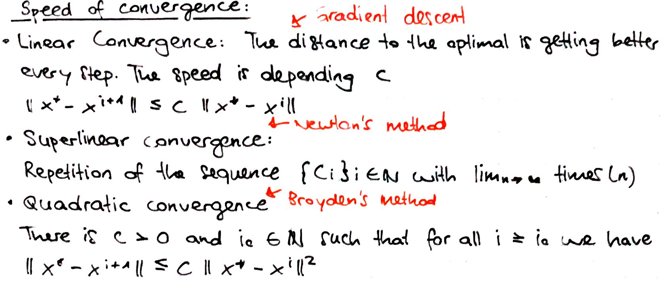 Speed of convergence:
Gradient descent
• Linear Convergence: The distance to the optimal is getting better
every step. The speed is depending C
‖x* - xⁱ⁺¹‖ ≤ C ‖x* - xⁱ‖
Newton's method
• Superlinear convergence:
Repetition of the sequence {Ci}i∈ℕ with limₙ→∞ times (n)
• Quadratic convergence Broyden's method
There is C > 0 and i₀ ∈ ℕ such that for all i ≥ i₀ we have
‖x* - xⁱ⁺¹‖ ≤ C ‖x* - xⁱ‖²